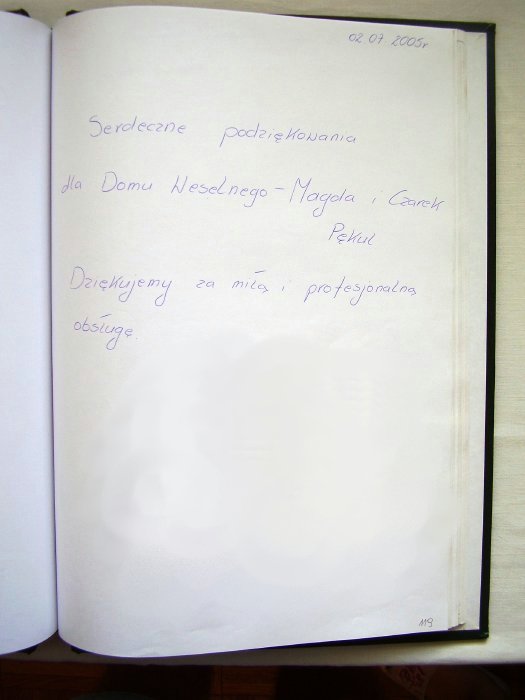 02.07.2005r
Serdeczne podziękowania
dla Domu Weselnego - Magda i Czarek
Pękul
Dziękujemy za miłą i profesjonalną
obsługę.
119